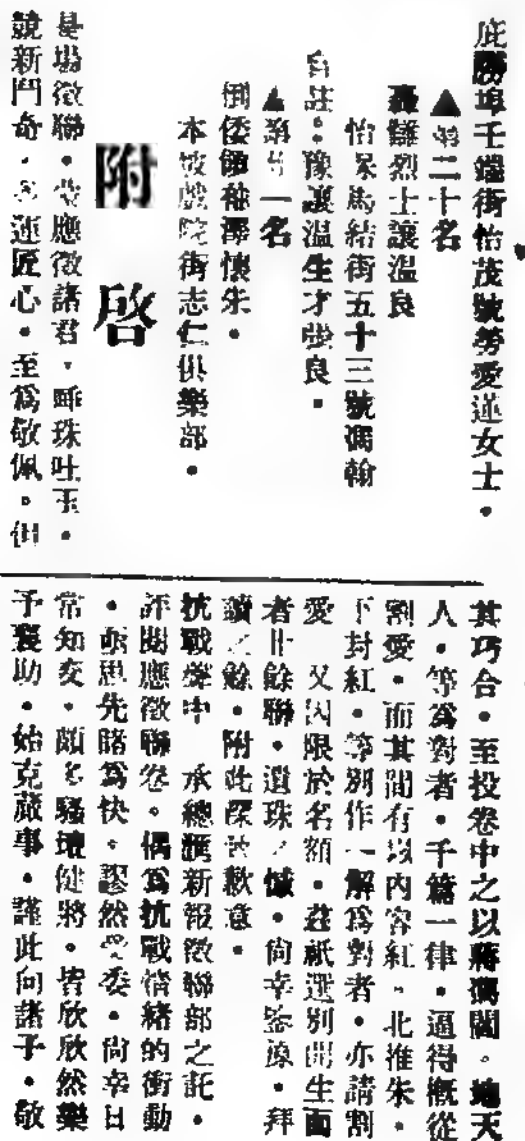 庇勝埠壬端街怡茂號勞愛蓮女士。
▲第二十名
轟讎烈士讓溫良
怡保馬結街五十三號馮翰
自註：豫讓溫生才張良。
▲第廿一名
倒倭師祖澤懷朱。
本坡戲院街志仁俱樂部。
附啓
是塲徵聯。蒙應徵諸君，唾珠吐玉。
競新鬥奇。各運匠心。至爲敬佩。但
其巧合。至投卷中之以蔣馮閻。地天
人。等爲對者。千篇一律。逼得概從
割愛。而其間有以內容紅。北推朱。
下封紅。等別作一解爲對者。亦請割
愛 又因限於名額。茲祇選別開生面
者廿餘聯。遺珠之憾。尚幸鑒諒。拜
讀之餘。附此深致歉意。
抗戰聲中 承總匯新報徵聯部之託。
評閱應徵聯卷。偶爲抗戰情緒的衝動
。亟思先睹爲快。謬然受委。尚幸日
常知交。頗多騷壇健將。皆欣欣然樂
予襄助。始克蕆事。謹此向諸子。敬